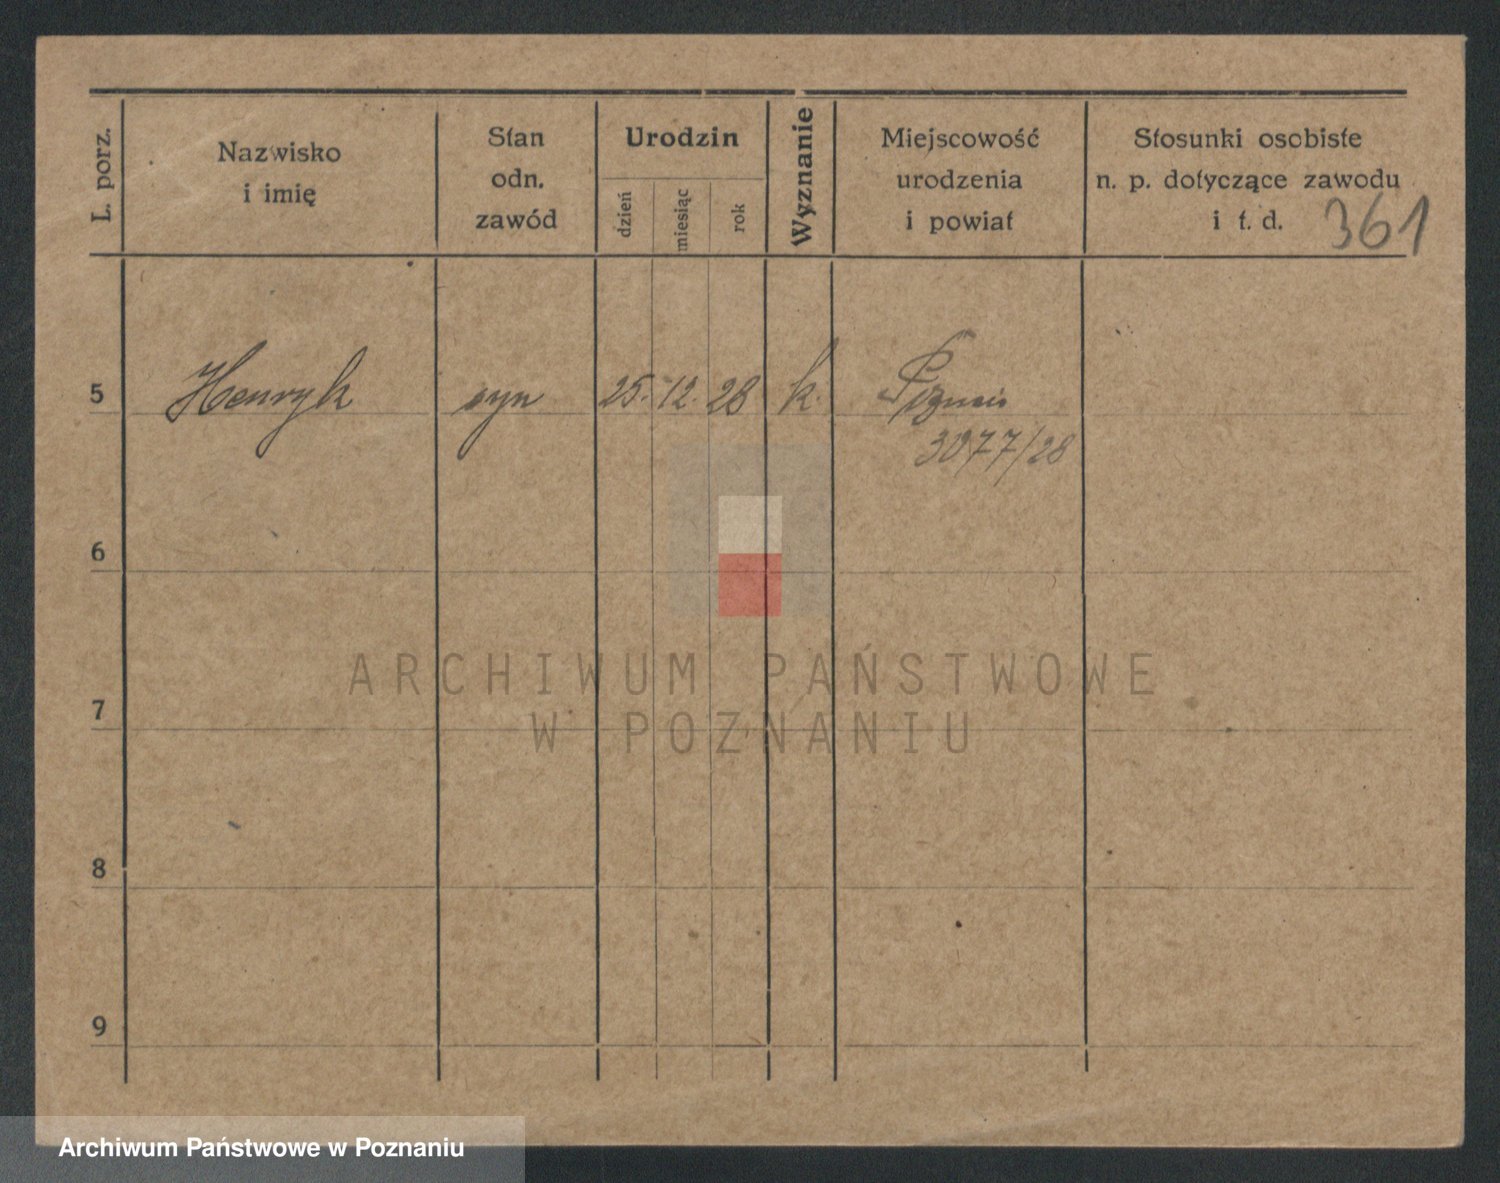 L. porz.
Nazwisko
i imię
Stan
odn.
zawód
Urodzin
dzień
miesiąc
rok
Wyznanie
Miejscowość
urodzenia
i powiat
Stosunki osobiste
n. p. dotyczące zawodu
i t. d.
361
5 Henryk syn 25. 12. 28 k. Poznań
3077/28
6
7
8
9
ARCHIWUM PAŃSTWOWE
W POZNANIU
Archiwum Państwowe w Poznaniu